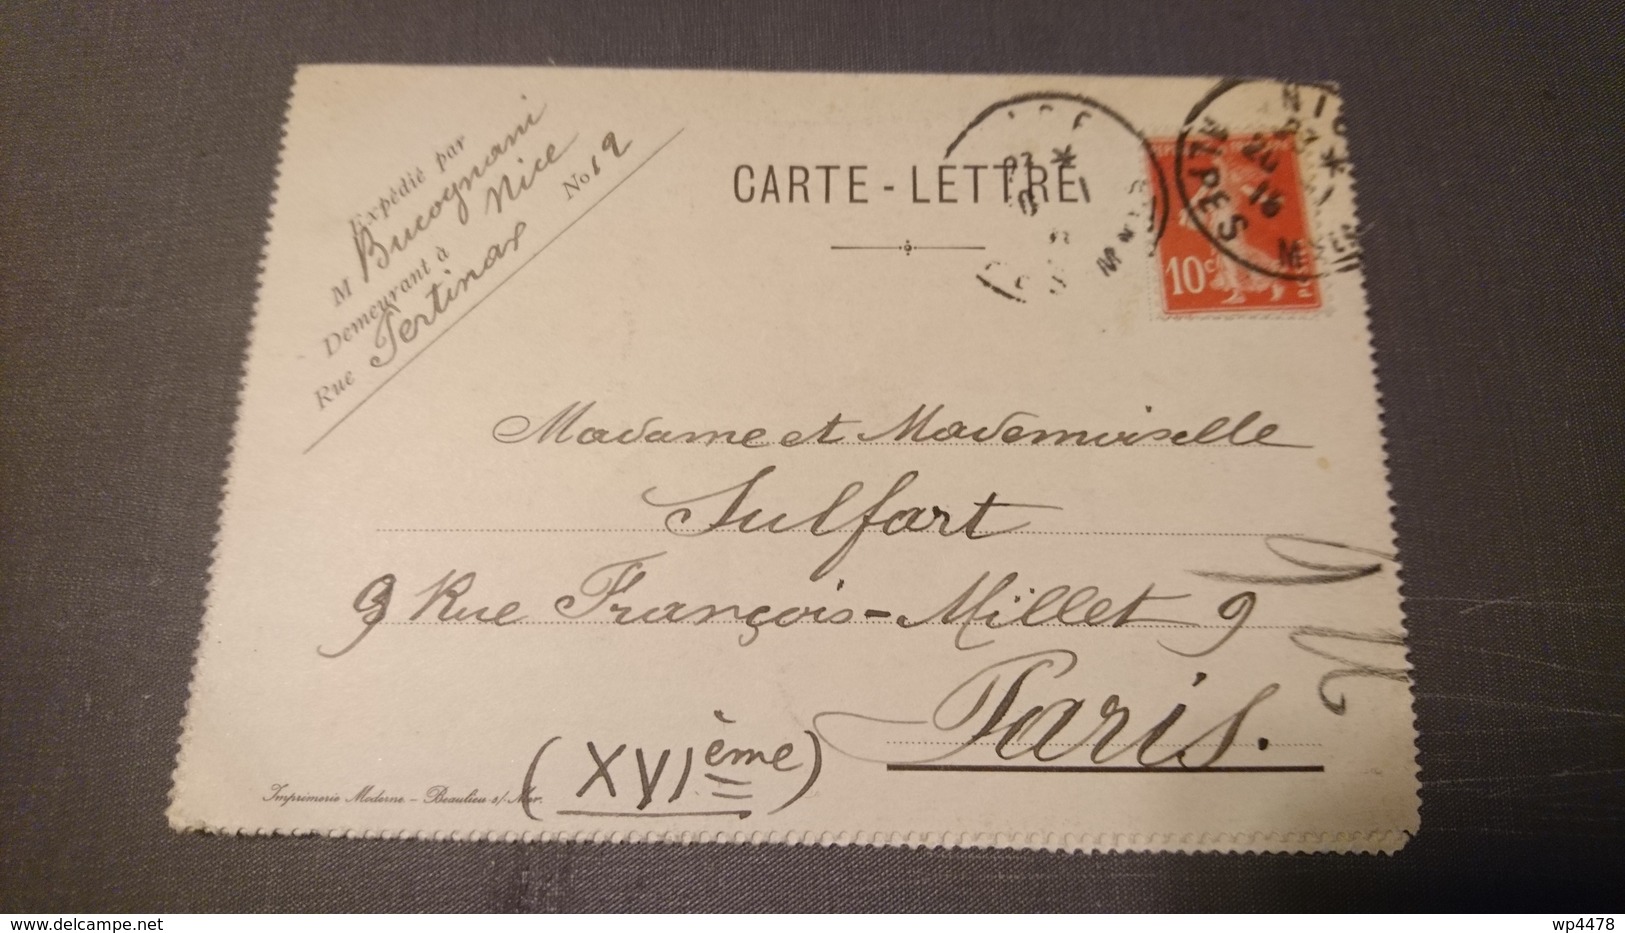 Expédié par
M Bucognani
Demeurant à Nice
Rue Pertinax No 12
CARTE - LETTRE
NICE
ALPES
10c
Madame et Mademoiselle
Sulfart
9 Rue François-Millet 9
Paris.
(XVIème)
Imprimerie Moderne - Beaulieu s/-Mer.
www.delcampe.net
wp4478